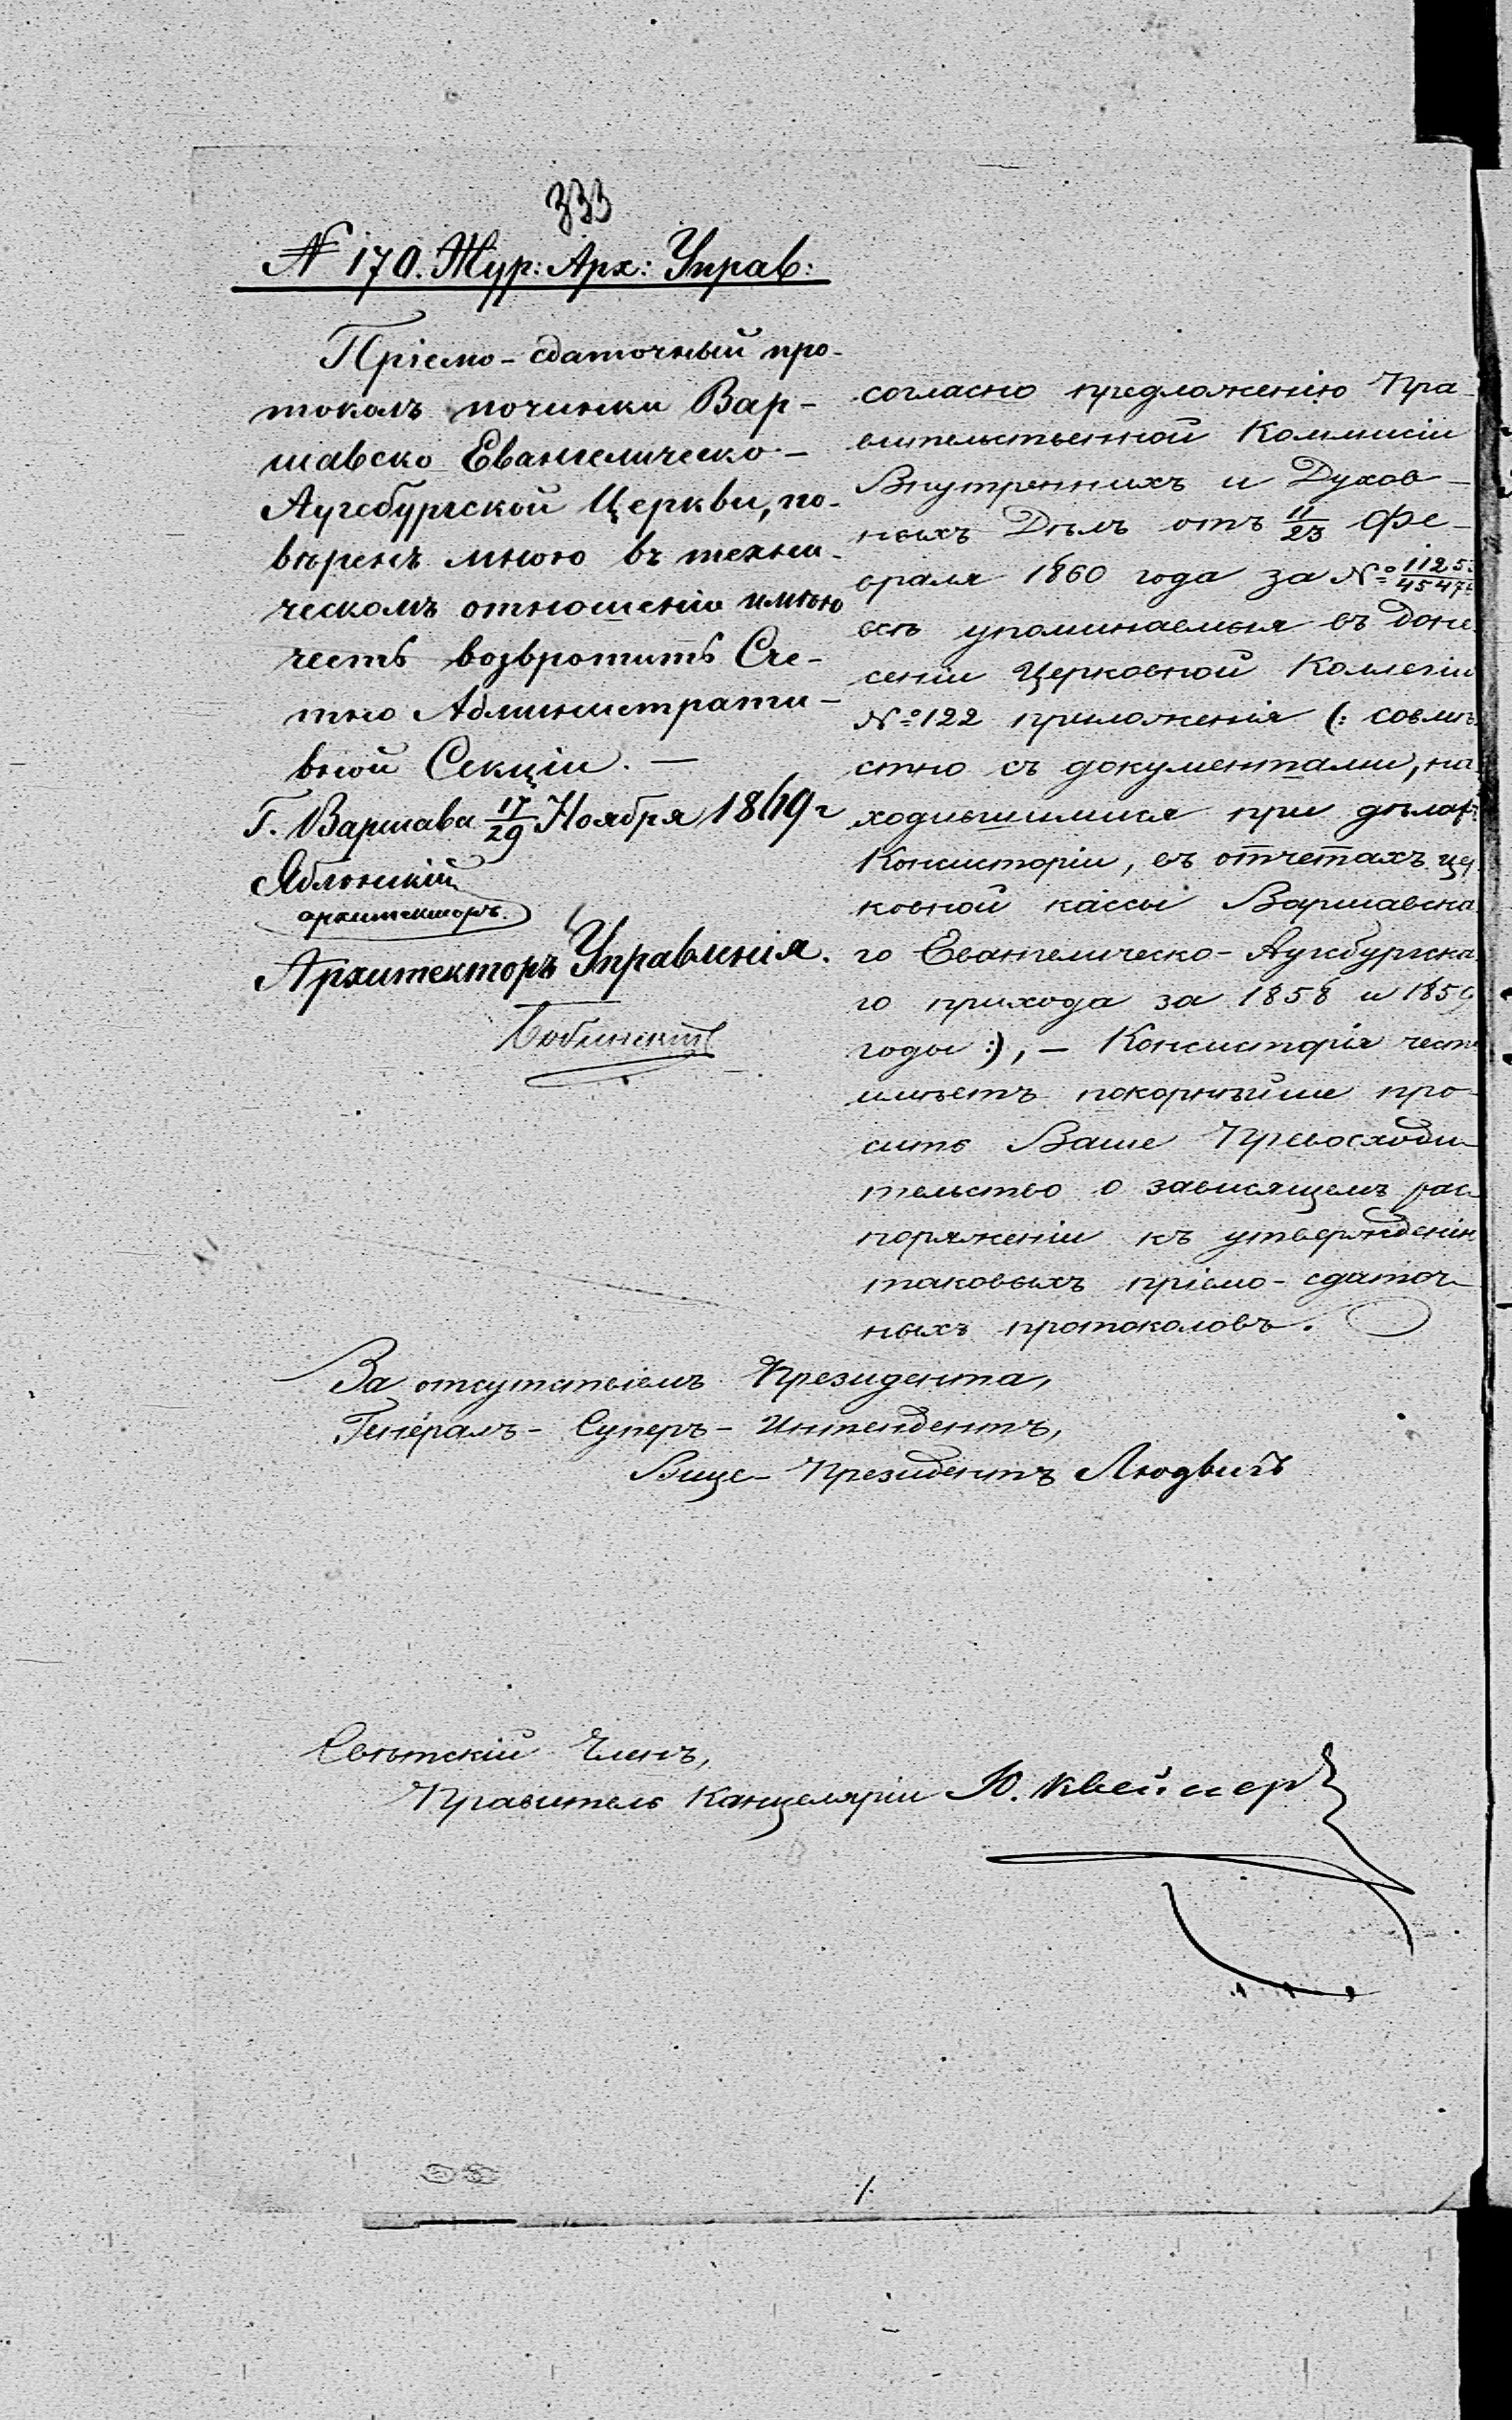 333
№ 170. Жур: Арх: Управ:
Пріемо-сдаточный про-
токолъ починки Вар-
шавско Евангелическо-
Аугсбургской Церкви, по-
вѣренъ мною въ техни-
ческомъ отношеніи имѣю
честь возвротить Сче-
тно Администрати-
вной Секціи. —
Г. Варшава 17/29 Ноября 1869 г
Яблонскій
архитекторъ.
Архитекторъ Управленія.
согласно предложенію Пра-
вительственной Коммисіи
Внутреннихъ и Духов-
ныхъ Дѣлъ отъ 11/23 Фе-
враля 1860 года за №
всѣ упоминаемыя въ доне-
сеніи Церковной Коллегіи
№ 122 приложенія (: совмѣ-
стно съ документами, на-
ходившимися при дѣлах
Консисторіи, въ отчетахъ цер
ковной кассы Варшавска
го Евангелическо-Аугсбургска
го прихода за 1858 и 1859
годы :), — Консисторія честь
имѣетъ покорнѣйше про-
сить Ваше Превосходи-
тельство о зависящемъ рас
поряженіи къ утвержденію
таковыхъ пріемо-сдаточ-
ныхъ протоколовъ.
За отсутствіемъ Президента,
Генералъ-Суперъ-Интендентъ,
Вице-Президентъ Людвигъ
Свѣтскій Членъ,
Правитель Канцеляріи Ю.